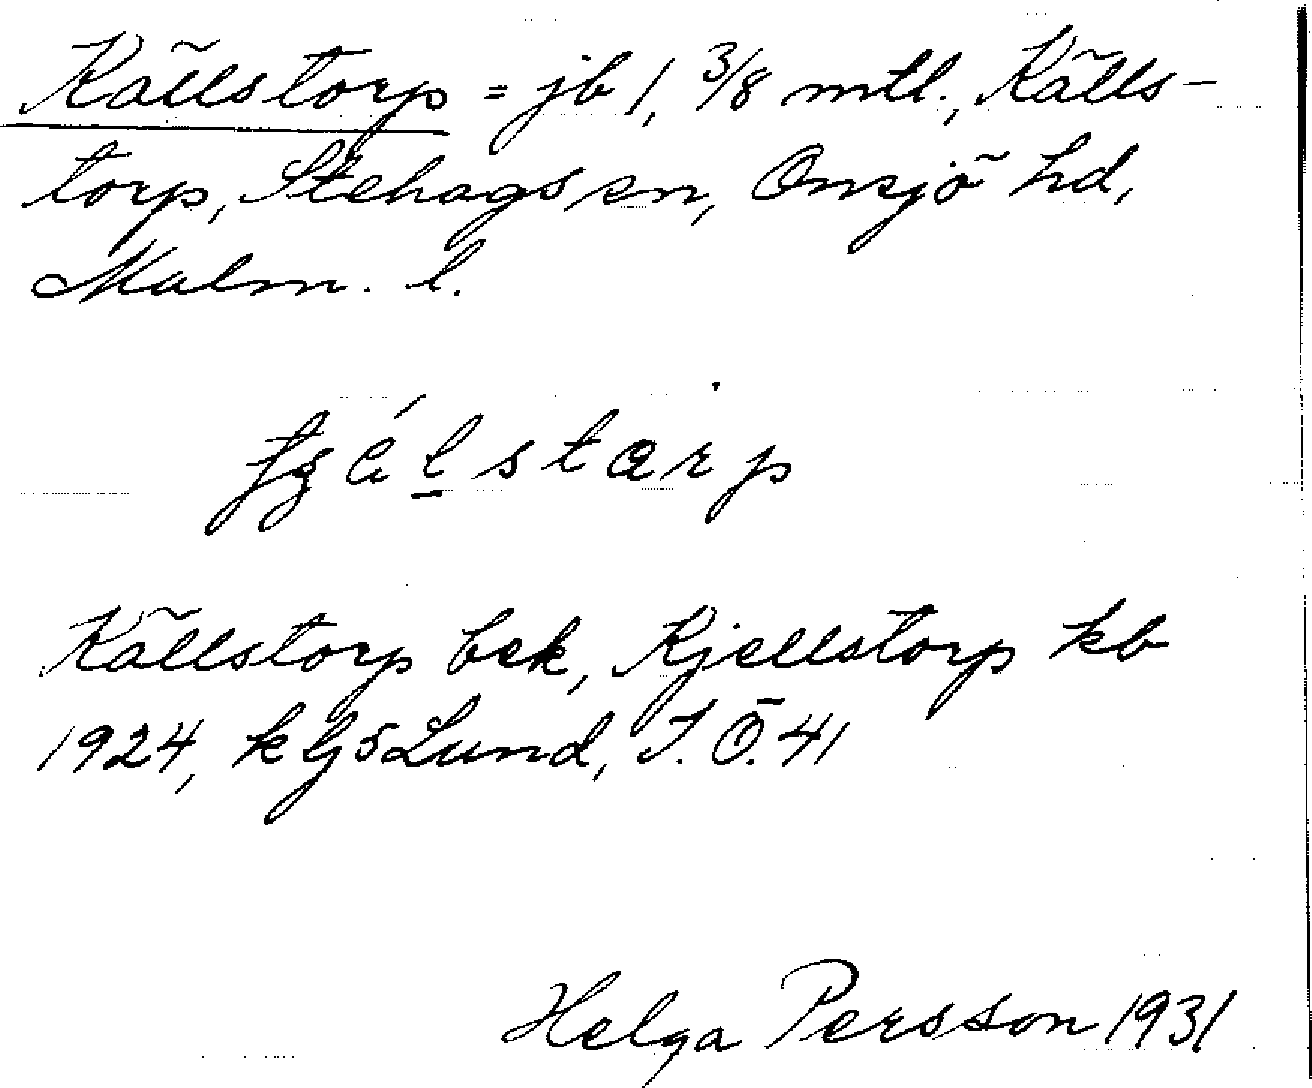 Källstorp = jb 1, 3/8 mtl., Källs-
torp, Stehags sn, Onsjö hd,
Malm. l.
Källstorp bek, Kjellstorp kb
1924, kljs Lund, I. Ö. 41
Helga Persson 1931